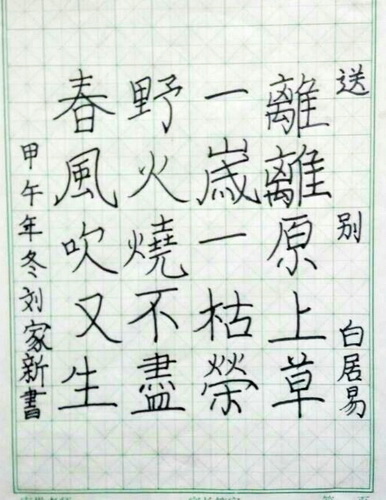 送别 白居易
離離原上草
一歲一枯榮
野火燒不盡
春風吹又生
甲午年冬刘家新書